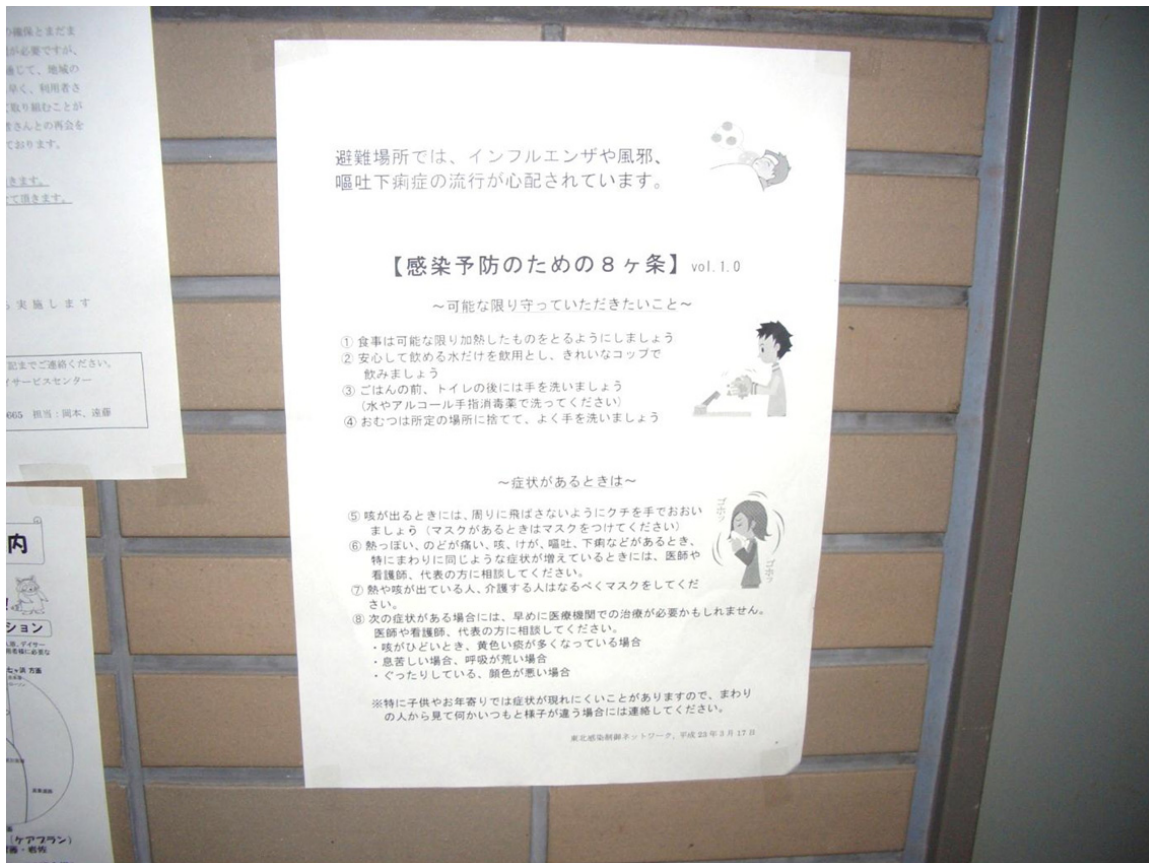 の確保とまだま
が必要ですが、
通じて、地域の
早く、利用者さ
て取り組むことが
皆さんとの再会を
ております。
きます。
て頂きます。
実施します
記までご連絡ください。
イサービスセンター
0665 担当：岡本、遠藤
内
ション
七ヶ浜 方面
(ケアプラン)
避難場所では、インフルエンザや風邪、
嘔吐下痢症の流行が心配されています。
【感染予防のための８ヶ条】 vol.1.0
～可能な限り守っていただきたいこと～
① 食事は可能な限り加熱したものをとるようにしましょう
② 安心して飲める水だけを飲用とし、きれいなコップで
飲みましょう
③ ごはんの前、トイレの後には手を洗いましょう
（水やアルコール手指消毒薬で洗ってください）
④ おむつは所定の場所に捨てて、よく手を洗いましょう
～症状があるときは～
⑤ 咳が出るときには、周りに飛ばさないようにクチを手でおおい
ましょう（マスクがあるときはマスクをつけてください）
⑥ 熱っぽい、のどが痛い、咳、けが、嘔吐、下痢などがあるとき、
特にまわりに同じような症状が増えているときには、医師や
看護師、代表の方に相談してください。
⑦ 熱や咳が出ている人、介護する人はなるべくマスクをしてくだ
さい。
⑧ 次の症状がある場合には、早めに医療機関での治療が必要かもしれません。
医師や看護師、代表の方に相談してください。
・咳がひどいとき、黄色い痰が多くなっている場合
・息苦しい場合、呼吸が荒い場合
・ぐったりしている、顔色が悪い場合
※特に子供やお年寄りでは症状が現れにくいことがありますので、まわり
の人から見て何かいつもと様子が違う場合には連絡してください。
東北感染制御ネットワーク, 平成23年3月17日
ゴホッ
ゴホッ